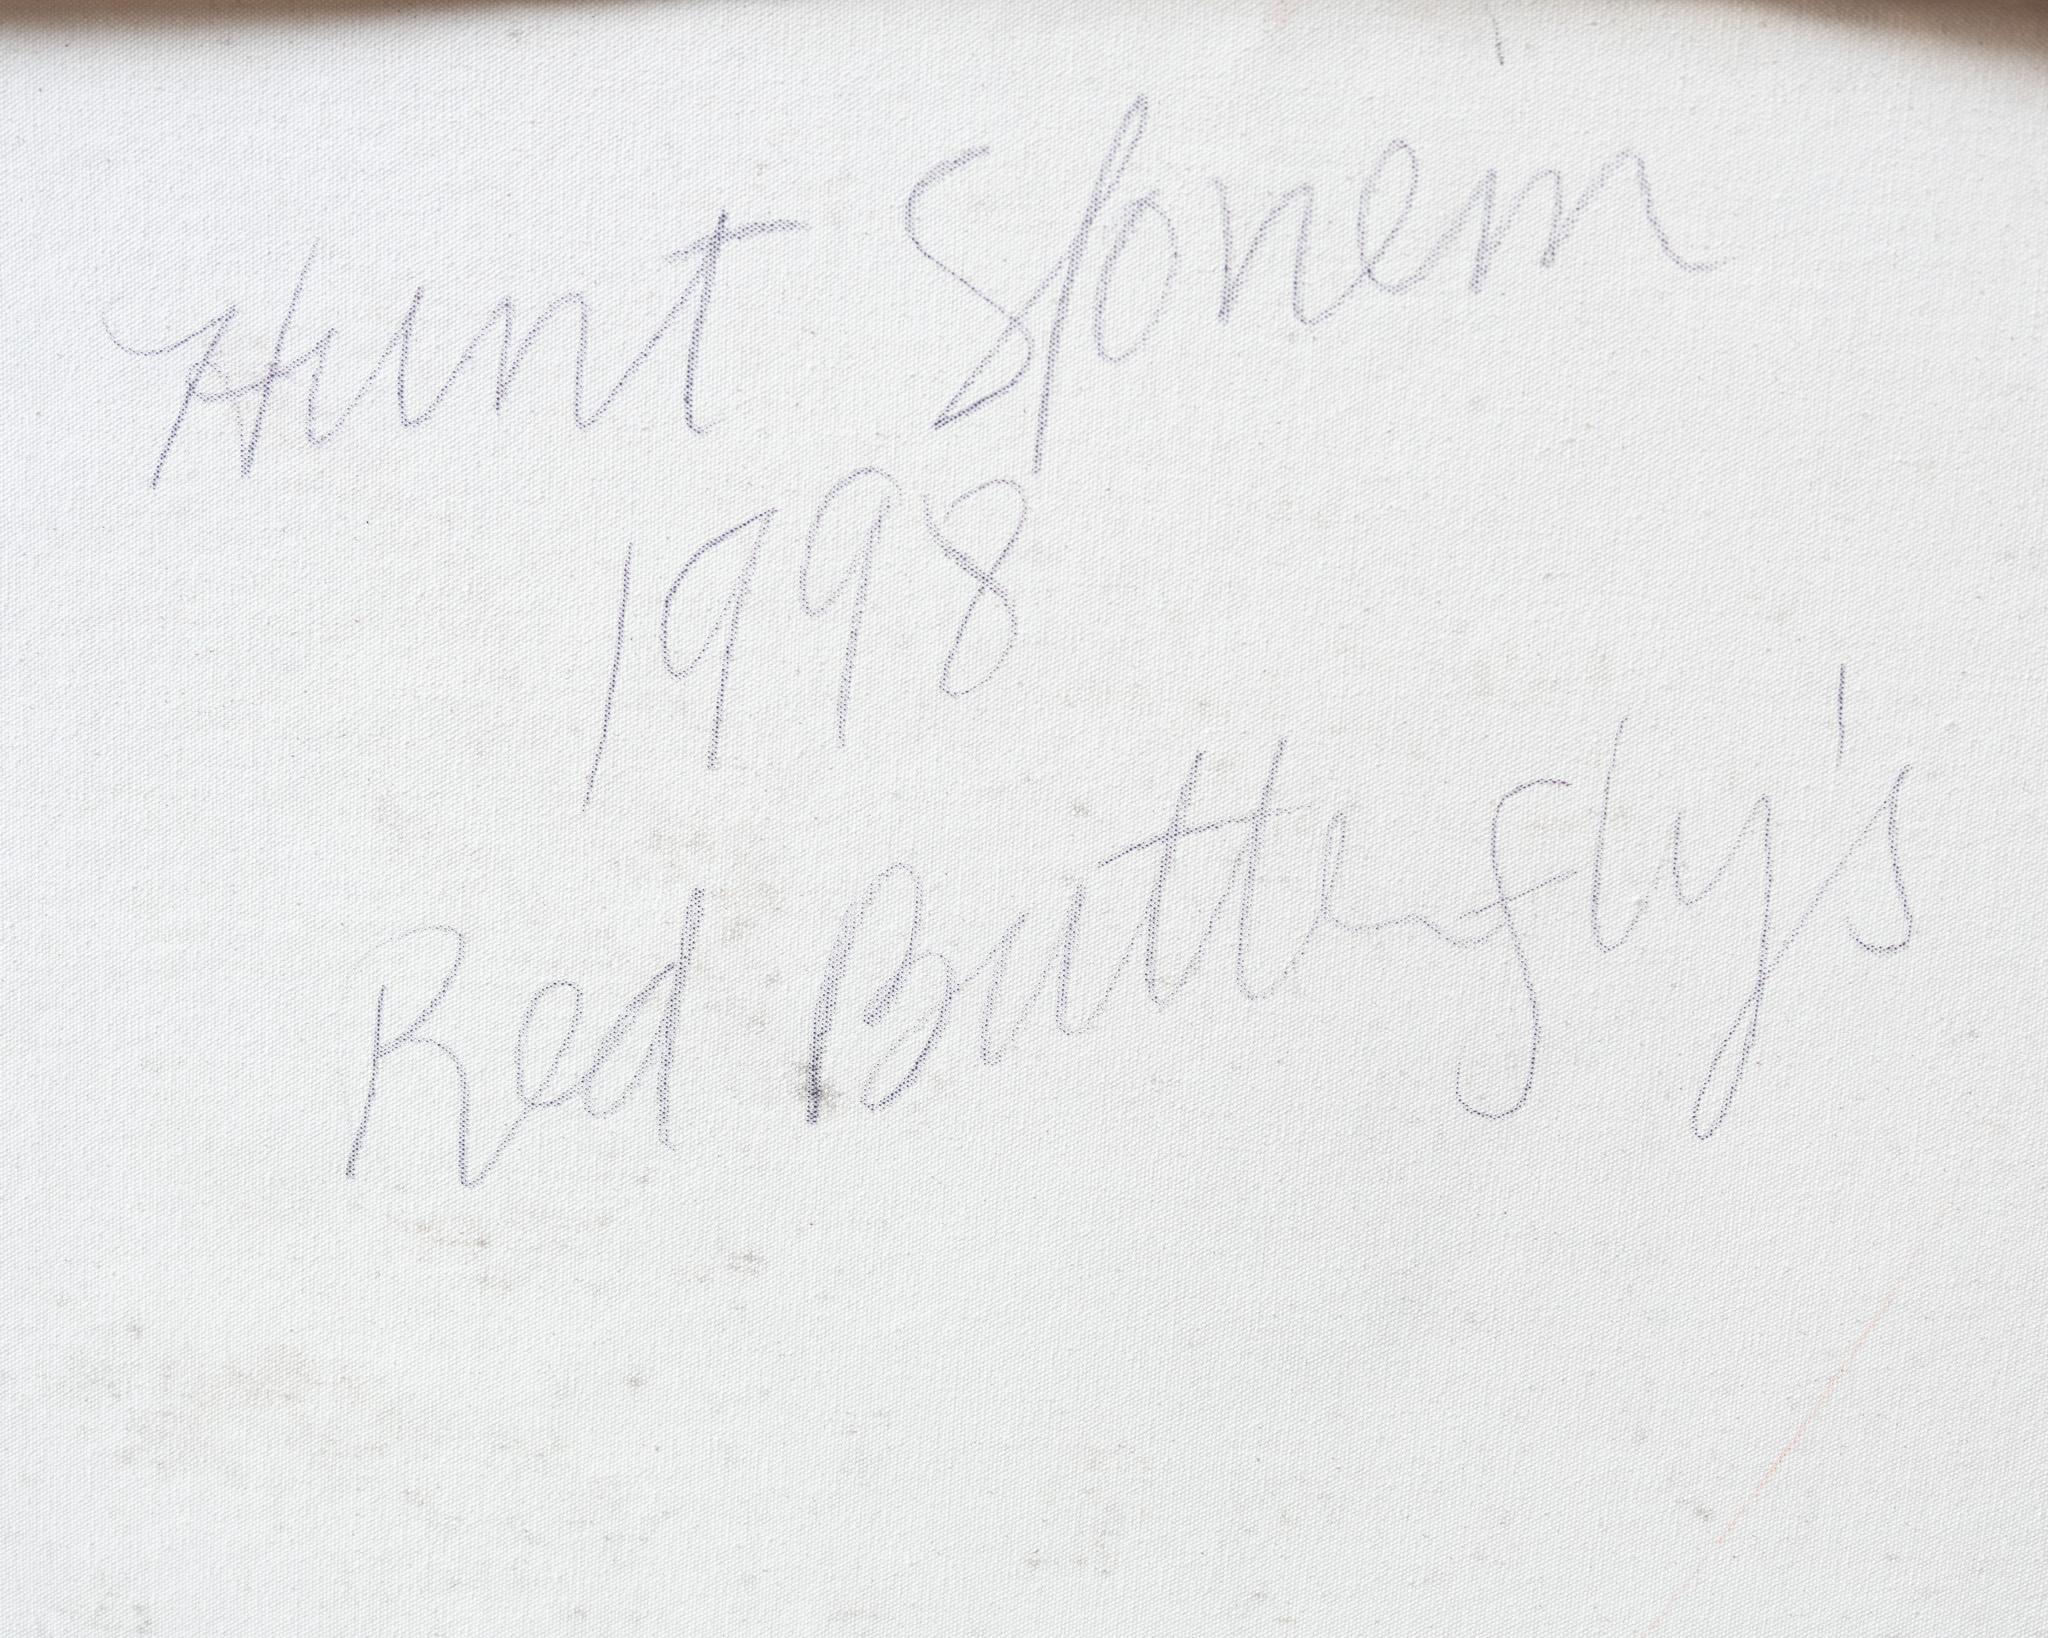 Hunt Slonem
1998
Red Butterfly's